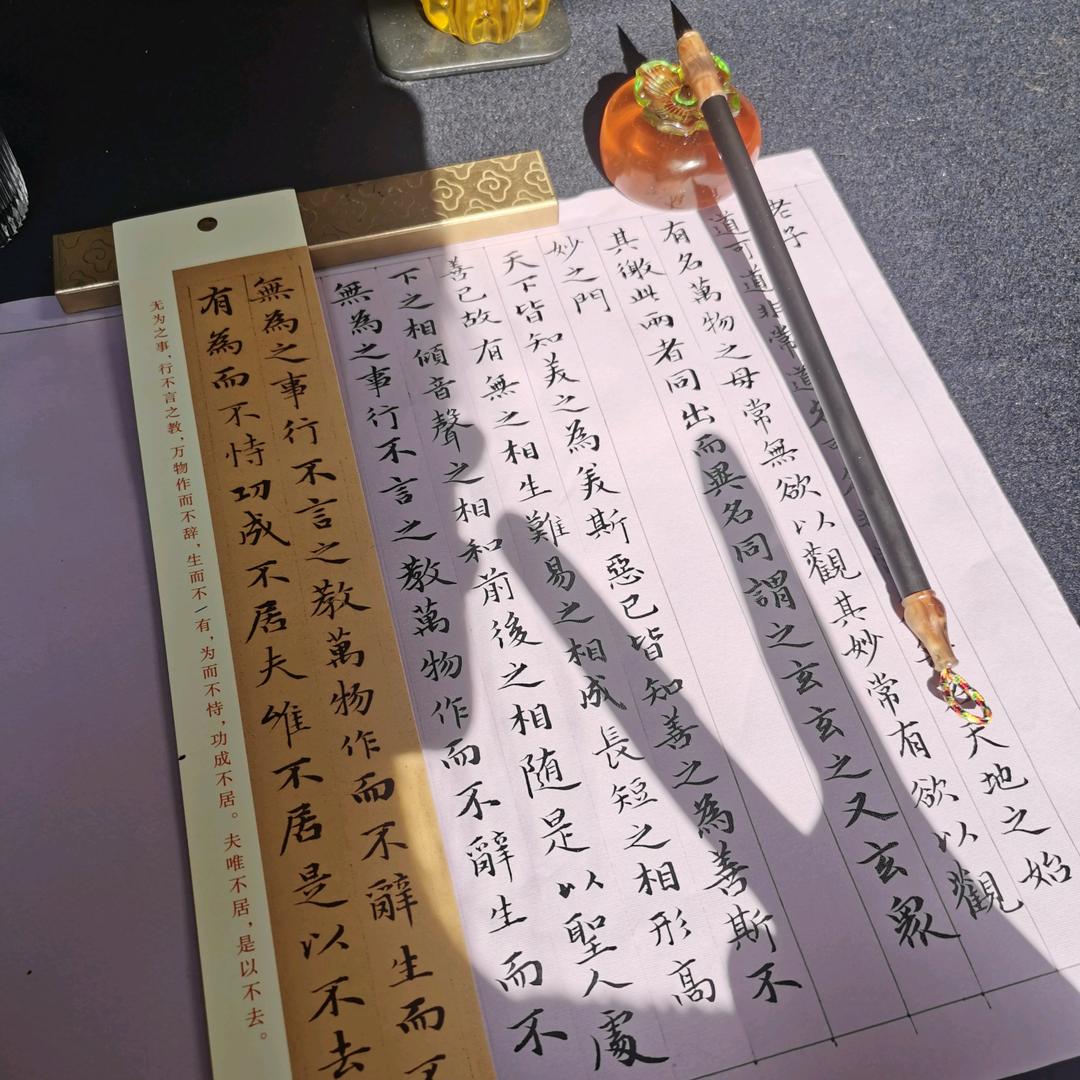 老子
道可道非常道名可天地之始
有名萬物之母常無欲以觀其妙常有欲以觀
其徼此兩者同出而異名同謂之玄玄之又玄眾
妙之門
天下皆知美之為美斯惡已皆知善之為善斯不
善已故有無之相生難易之相成長短之相形高
下之相傾音聲之相和前後之相随是以聖人處
無為之事行不言之教萬物作而不辭生而不
無為之事行不言之教萬物作而不辭生而不
有為而不恃功成不居夫唯不居是以不去
无为之事，行不言之教，万物作而不辞，生而不/有，为而不恃，功成不居。夫唯不居，是以不去。